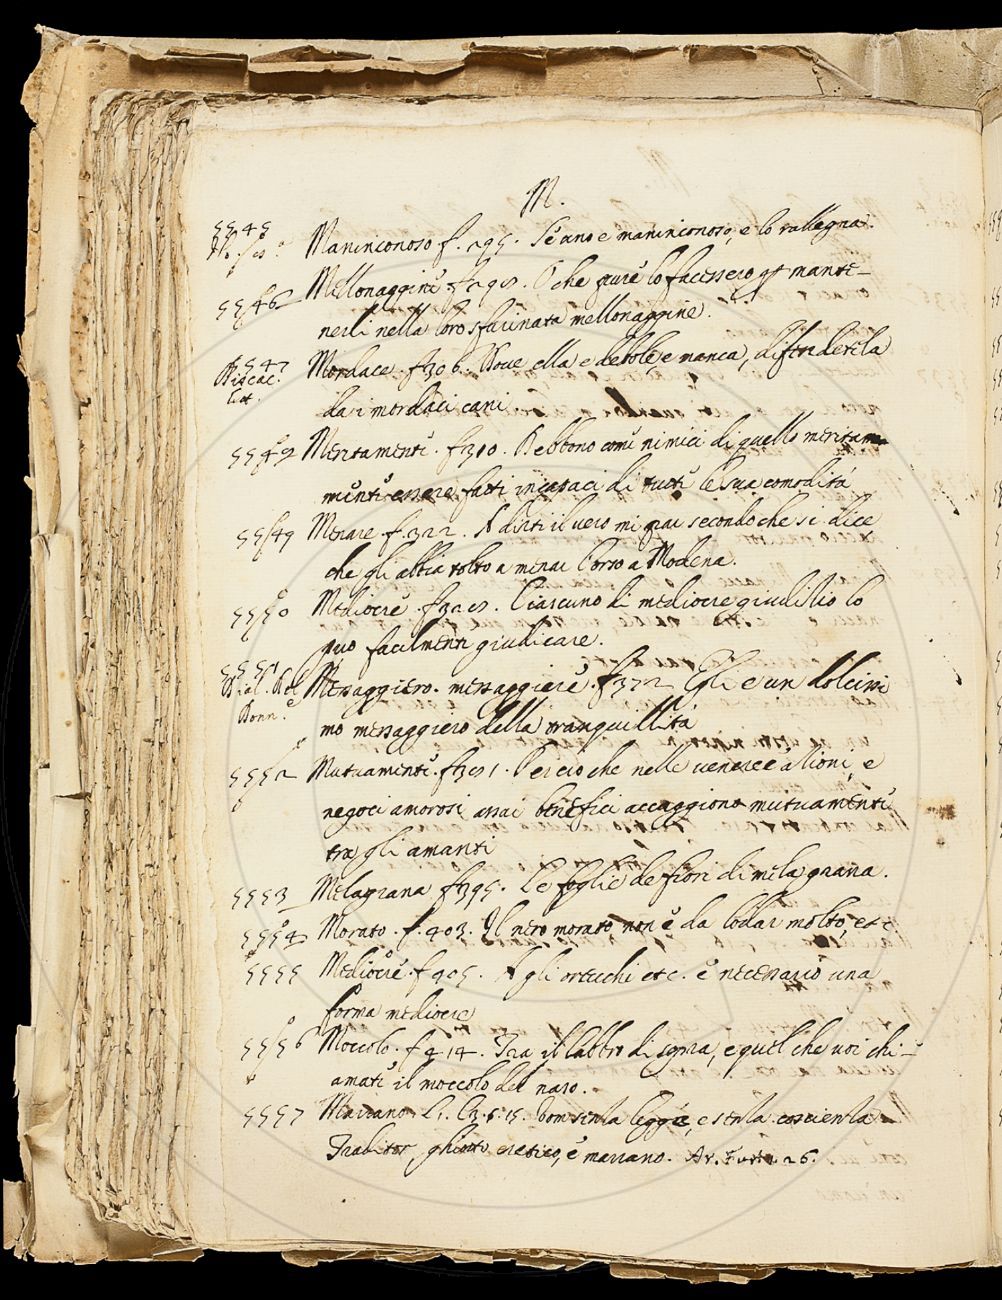 M.
5545 Maninconoso f. 295. Se uno è maninconoso, e lo rallegra.
5546 Mellonaggine f. 298. O che pure lo facessero per mante-
nerli nella loro sfacinata mellonaggine.
5547 Mordace. f. 306. Dove ella è debole, e manca, difendetela
da i mordaci cani
5548 Meritamente. f. 310. Debbono come nimici di quello meritamen
mente essere fatti incapaci di tutte le sua comodità
5549 Menare f. 322. A dirti il vero mi par secondo che si dice
che gli abbia tolto a menar l'orso a Modena.
5550 Mediocre. f. 328. Ciascuno di mediocre giuditio lo
può facilmente giudicare.
5551 Dial. Bel. Donn. Messaggiero. messaggiere. f. 372 Egli è un dolcissi
mo messaggiero della tranquillità
5552 Mutuamente. f. 381. Perciò che nelle veneree ationi, e
negoci amorosi assai benefici accaggiono mutuamente
tra gli amanti
5553 Melagrana f. 395. Le foglie de fiori di mela grana.
5554 Morato. f. 403. Il nero morato non è da lodar molto, etc
5555 Mediocre. f. 405. A gli orecchi etc. è necessario una
forma mediocre
5556 Moccolo. f. 414. Tra il labbro di sopra, e quel che voi chi-
amate il moccolo del naso.
5557 Marrano. L. 15. Com senza legge, e senza coscienza
Traditor, ghiotto eretico, e marrano. Ar. Fur. 26.